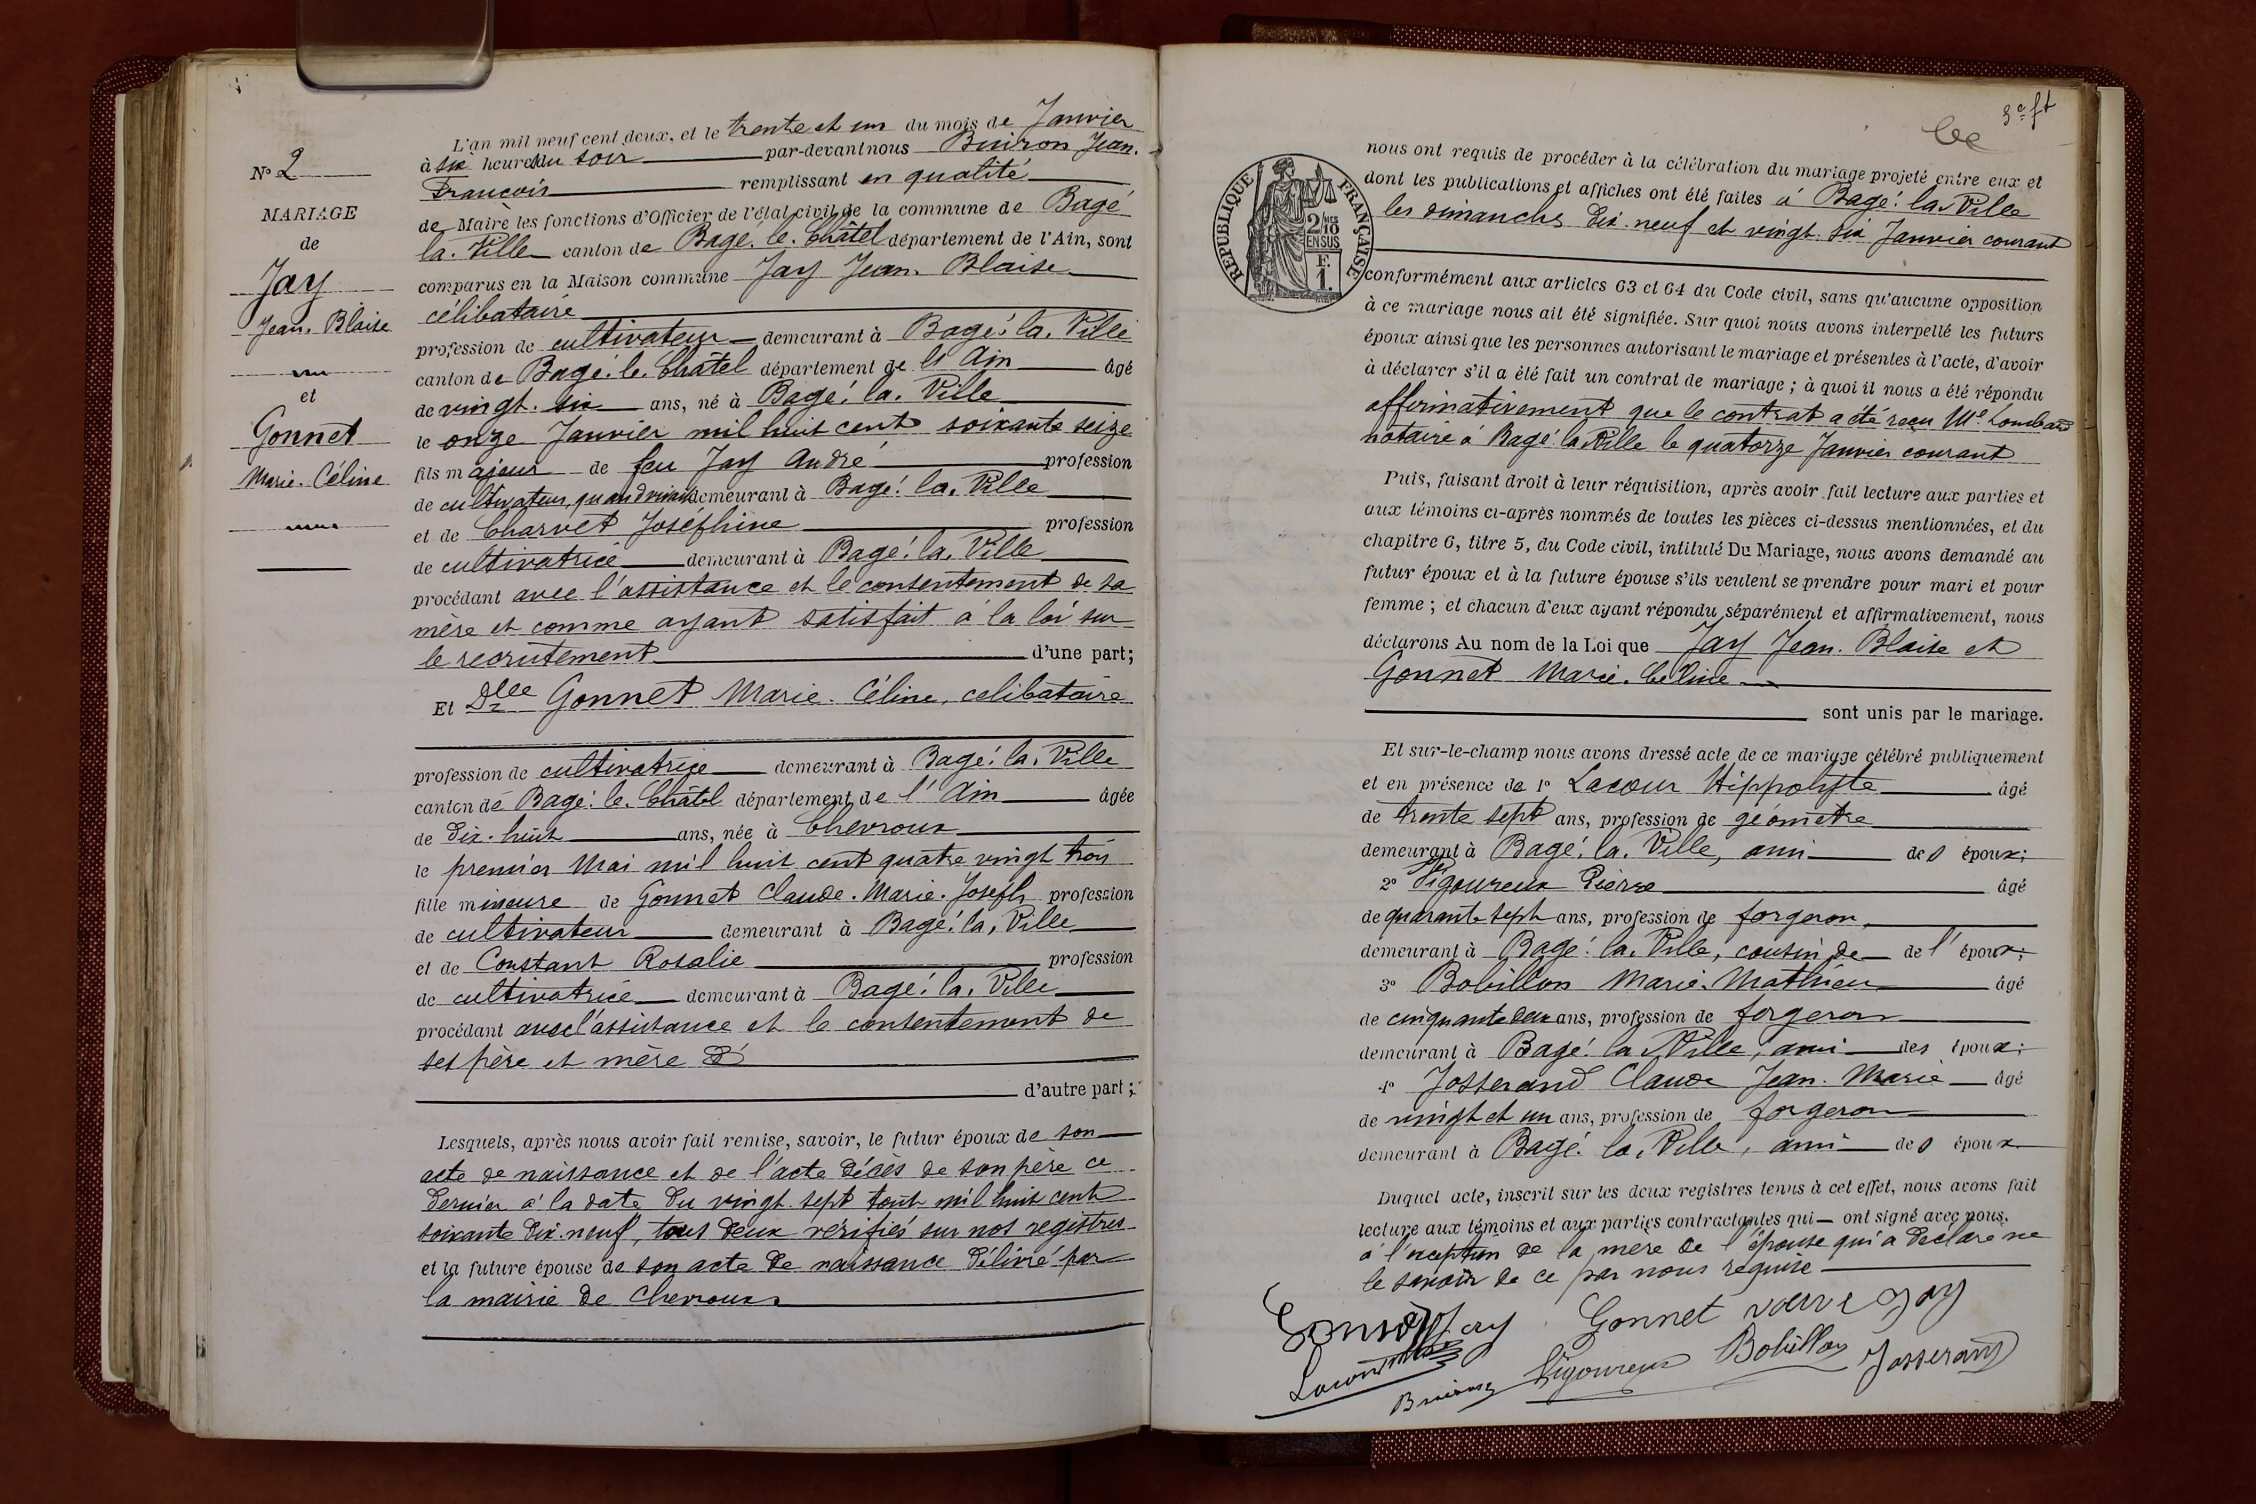 N° 2
MARIAGE
de
Jay
Jean. Blaise
et
Gonnet
Marie. Céline
L'an mil neuf cent deux, et le trente et un du mois de Janvier
à six heures du soir par-devant nous Buiron Jean.
Francois remplissant en qualité
de Maire les fonctions d'Officier de l'état civil de la commune de Bagé
la. Ville canton de Bagé. le. Châtel département de l'Ain, sont
comparus en la Maison commune Jay Jean. Blaise
célibataire
profession de cultivateur demeurant à Bagé. la. Ville
canton de Bagé. le. Châtel département de l'Ain âgé
de vingt. six ans, né à Bagé. la. Ville
le onze Janvier mil huit cent soixante seize
fils majeur de feu Jay André profession
de cultivateur, quand vivait demeurant à Bagé. la. Ville
et de Charvet Joséphine profession
de cultivatrice demeurant à Bagé. la. Ville
procédant avec l'assistance et le consentement de sa
mère et comme ayant satisfait à la loi sur
le recrutement d'une part;
Et Dlle Gonnet Marie. Céline, celibataire
profession de cultivatrice demeurant à Bagé. la. Ville
canton de Bagé. le. Châtel département de l'Ain âgée
de dix. huit ans, née à Chevroux
le premier Mai mil huit cent quatre vingt trois
fille mineure de Gonnet Claude. Marie. Joseph profession
de cultivateur demeurant à Bagé. la. Ville
et de Constant Rosalie profession
de cultivatrice demeurant à Bagé. la. Ville
procédant avec l'assistance et le consentement de
ses père et mère
d'autre part;
Lesquels, après nous avoir fait remise, savoir, le futur époux de son
acte de naissance et de l'acte décès de son père ce
dernier à la date du vingt. sept tout mil huit cent
soixante dix. neuf, tous deux vérifiés sur nos registres
et la future épouse de son acte de naissance délivré par
la mairie de Chevroux
3e ft
RÉPUBLIQUE FRANÇAISE
2/10 EN SUS
F. 1.
nous ont requis de procéder à la célébration du mariage projeté entre eux et
dont les publications et affiches ont été faites à Bagé. la. Ville
les dimanches dix. neuf et vingt. six Janvier courant
conformément aux articles 63 et 64 du Code civil, sans qu'aucune opposition
à ce mariage nous ait été signifiée. Sur quoi nous avons interpellé les futurs
époux ainsi que les personnes autorisant le mariage et présentes à l'acte, d'avoir
à déclarer s'il a été fait un contrat de mariage ; à quoi il nous a été répondu
affirmativement que le contrat a été reçu Me Lombard
notaire à Bagé. la. Ville le quatorze Janvier courant
Puis, faisant droit à leur réquisition, après avoir fait lecture aux parties et
aux témoins ci-après nommés de toutes les pièces ci-dessus mentionnées, et du
chapitre 6, titre 5, du Code civil, intitulé Du Mariage, nous avons demandé au
futur époux et à la future épouse s'ils veulent se prendre pour mari et pour
femme ; et chacun d'eux ayant répondu séparément et affirmativement, nous
déclarons Au nom de la Loi que Jay Jean. Blaise et
Gonnet Marie. Céline
sont unis par le mariage.
Et sur-le-champ nous avons dressé acte de ce mariage célébré publiquement
et en présence de 1° Lacour Hippolyte âgé
de trente sept ans, profession de géomètre
demeurant à Bagé. la. Ville, ami des époux;
2° Vigoureux Pierre âgé
de quarante sept ans, profession de forgeron,
demeurant à Bagé. la. Ville, cousin de de l'époux;
3° Bobillon Marie. Mathieu âgé
de cinquante deux ans, profession de forgeron
demeurant à Bagé. la. Ville, ami des époux;
4° Josserand Claude Jean. Marie âgé
de vingt et un ans, profession de forgeron
demeurant à Bagé. la. Ville, ami des époux
Duquel acte, inscrit sur les deux registres tenus à cet effet, nous avons fait
lecture aux témoins et aux parties contractantes qui ont signé avec nous.
à l'exception de la mère de l'épouse qui a déclaré ne
le savoir de ce par nous requise
Jay Gonnet veuve Jay
Vigoureux Bobillon Josserand
Lacour Buiron